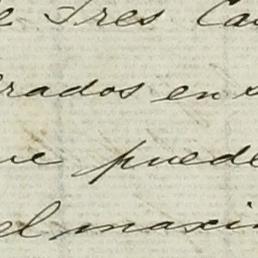 e Tres Ca
rados en s
ue puede
el maxi